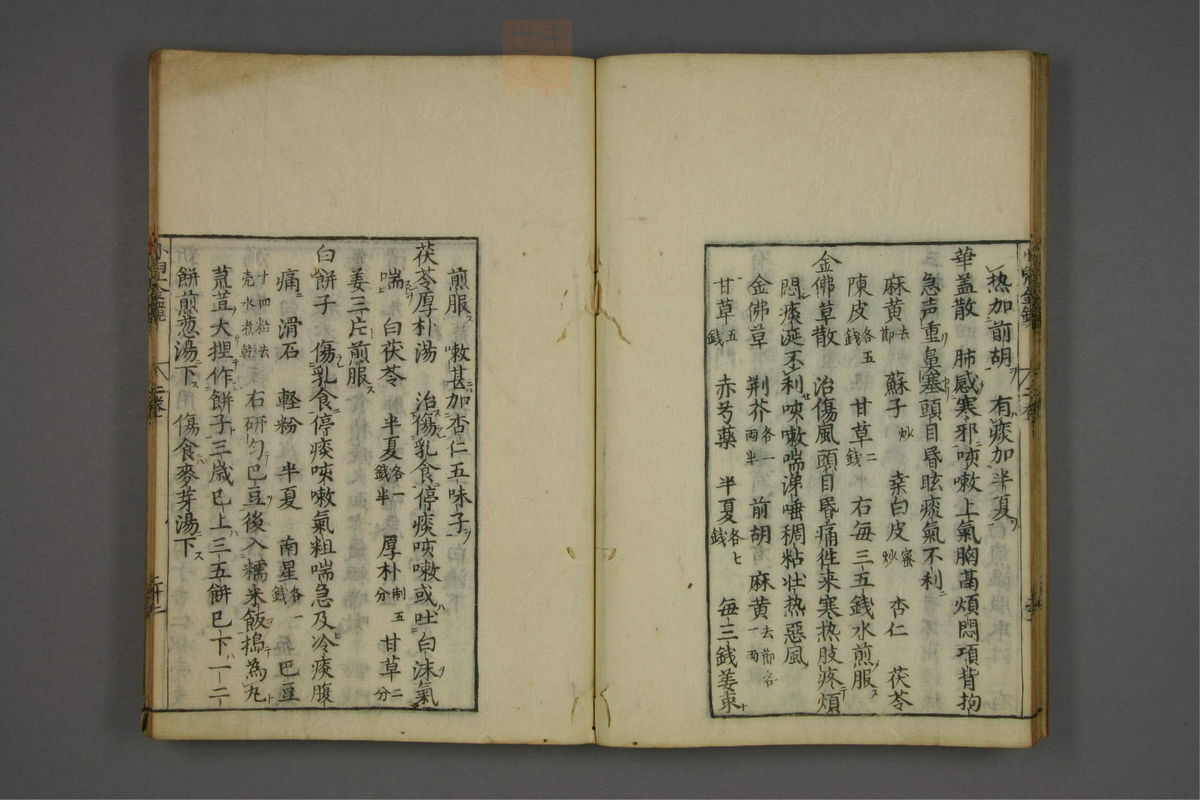 热加前胡ヲ 有痰加半夏ヲ
華盖散 肺感寒邪咳嗽上氣胸鬲煩悶項背拘
急声重鼻塞頭目昏眩痰氣不利ニ
麻黄去節 蘇子炒 桒白皮蜜炒 杏仁 茯苓
陳皮各五錢 甘草二錢 右每三五錢水煎服ス
金佛草散 治傷風頭目昏痛徃来寒热肢疼煩
悶痰涎不利咳嗽喘涕唾稠粘壮热惡風
金佛草 荆芥各一兩半 前胡 麻黄去節各一兩
甘草五錢 赤芍薬 半夏各七錢 每三錢姜枣ト
煎服ス 嗽甚加杏仁五味子ヲ
茯苓厚朴湯 治傷乳食停痰咳嗽或吐白沫氣
喘 白茯苓 半夏各一錢半 厚朴制五分 甘草二分
姜三片煎服ス
白餅子 傷乳食停痰咳嗽氣粗喘急及冷痰腹
痛 滑石 軽粉 半夏 南星各一錢 巴豆
十四粒去壳水煮乾 右研匀巴豆後入糯米飯搗為丸ト
菉荳大捏作餅子三歳已上三五餅已下一二
餅煎葱湯下ス 傷食麥芽湯下ス